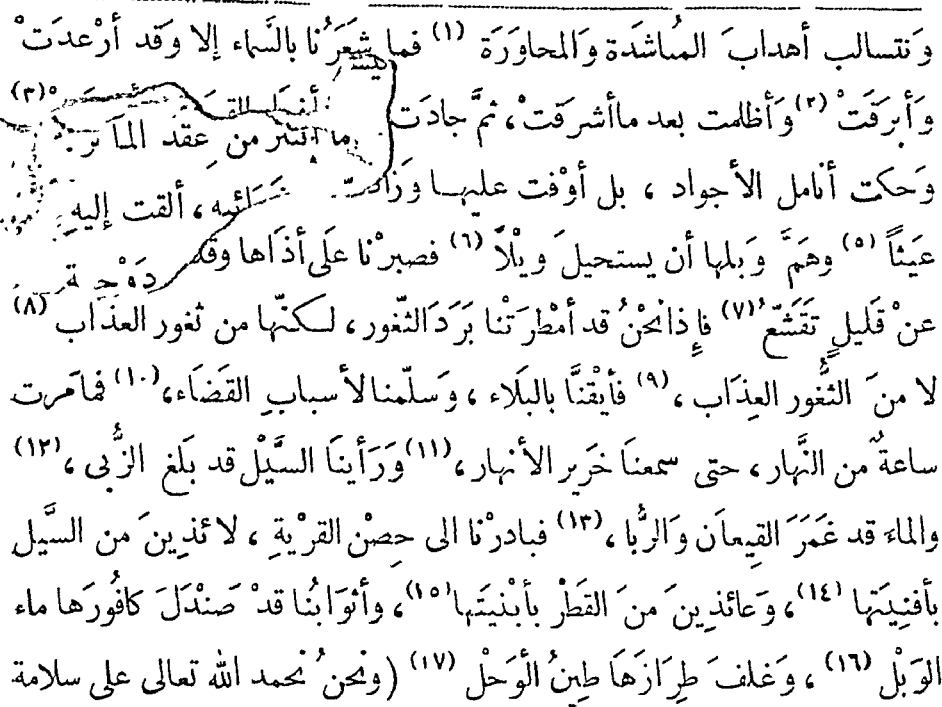 وَنتسالب أهدابَ المناشَدة وَالمحاوَرَة (١) فما شعَرْنا بالسَّماء إلا وَقد أرْعدَتْ
وَأبرَقَتْ (٢) وَأظلمت بعد ماأشرَقتْ، ثمَّ جادَت (٣) ما انتثر من عِقد
وَحكت أنامل الأجواد ، بل أوْفت عليهـا ، ألقت إليهِ
عَيثاً (٥) وهَمَّ وَبلها أن يستحيلَ وَيْلاً (٦) فصبرْنا عَلى أذَاها
عنْ قَليلٍ تقَشّعُ (٧) فإِذا نحْنُ قد أمْطرَتْنا بَرَدَ الثّغور، لـكنّها من ثغور العذَاب (٨)
لا منَ الثُّغور العِذَاب ، (٩) فأيْقنَّا بالبلَاء ، وَسلّمنا لأسبابِ القضَاء، (١٠) فمَا مَرت
ساعةٌ من النَّهار، حتى سمعنَا خَرِير الأنهار، (١١) وَرَأينَا السَّيْل قد بَلغ الزُّبى ، (١٢)
والماءَ قد غَمَرَ القِيعَان وَالرُّبا ، (١٣) فبادرْنا الى حِصْن القرْيةِ ، لائذِينَ من السَّيل
بأفنِيَتها (١٤) ، وَعائذِينَ منَ القَطْر بأبْنيَتها (١٥) ، وأثوَابُنا قدْ صَندَلَ كافُورَها ماء
الوَبْل (١٦) ، وَغلفَ طِرَازَهَا طِينُ الْوَحْل (١٧) (ونحنُ نحمد الله تعالى على سلامة